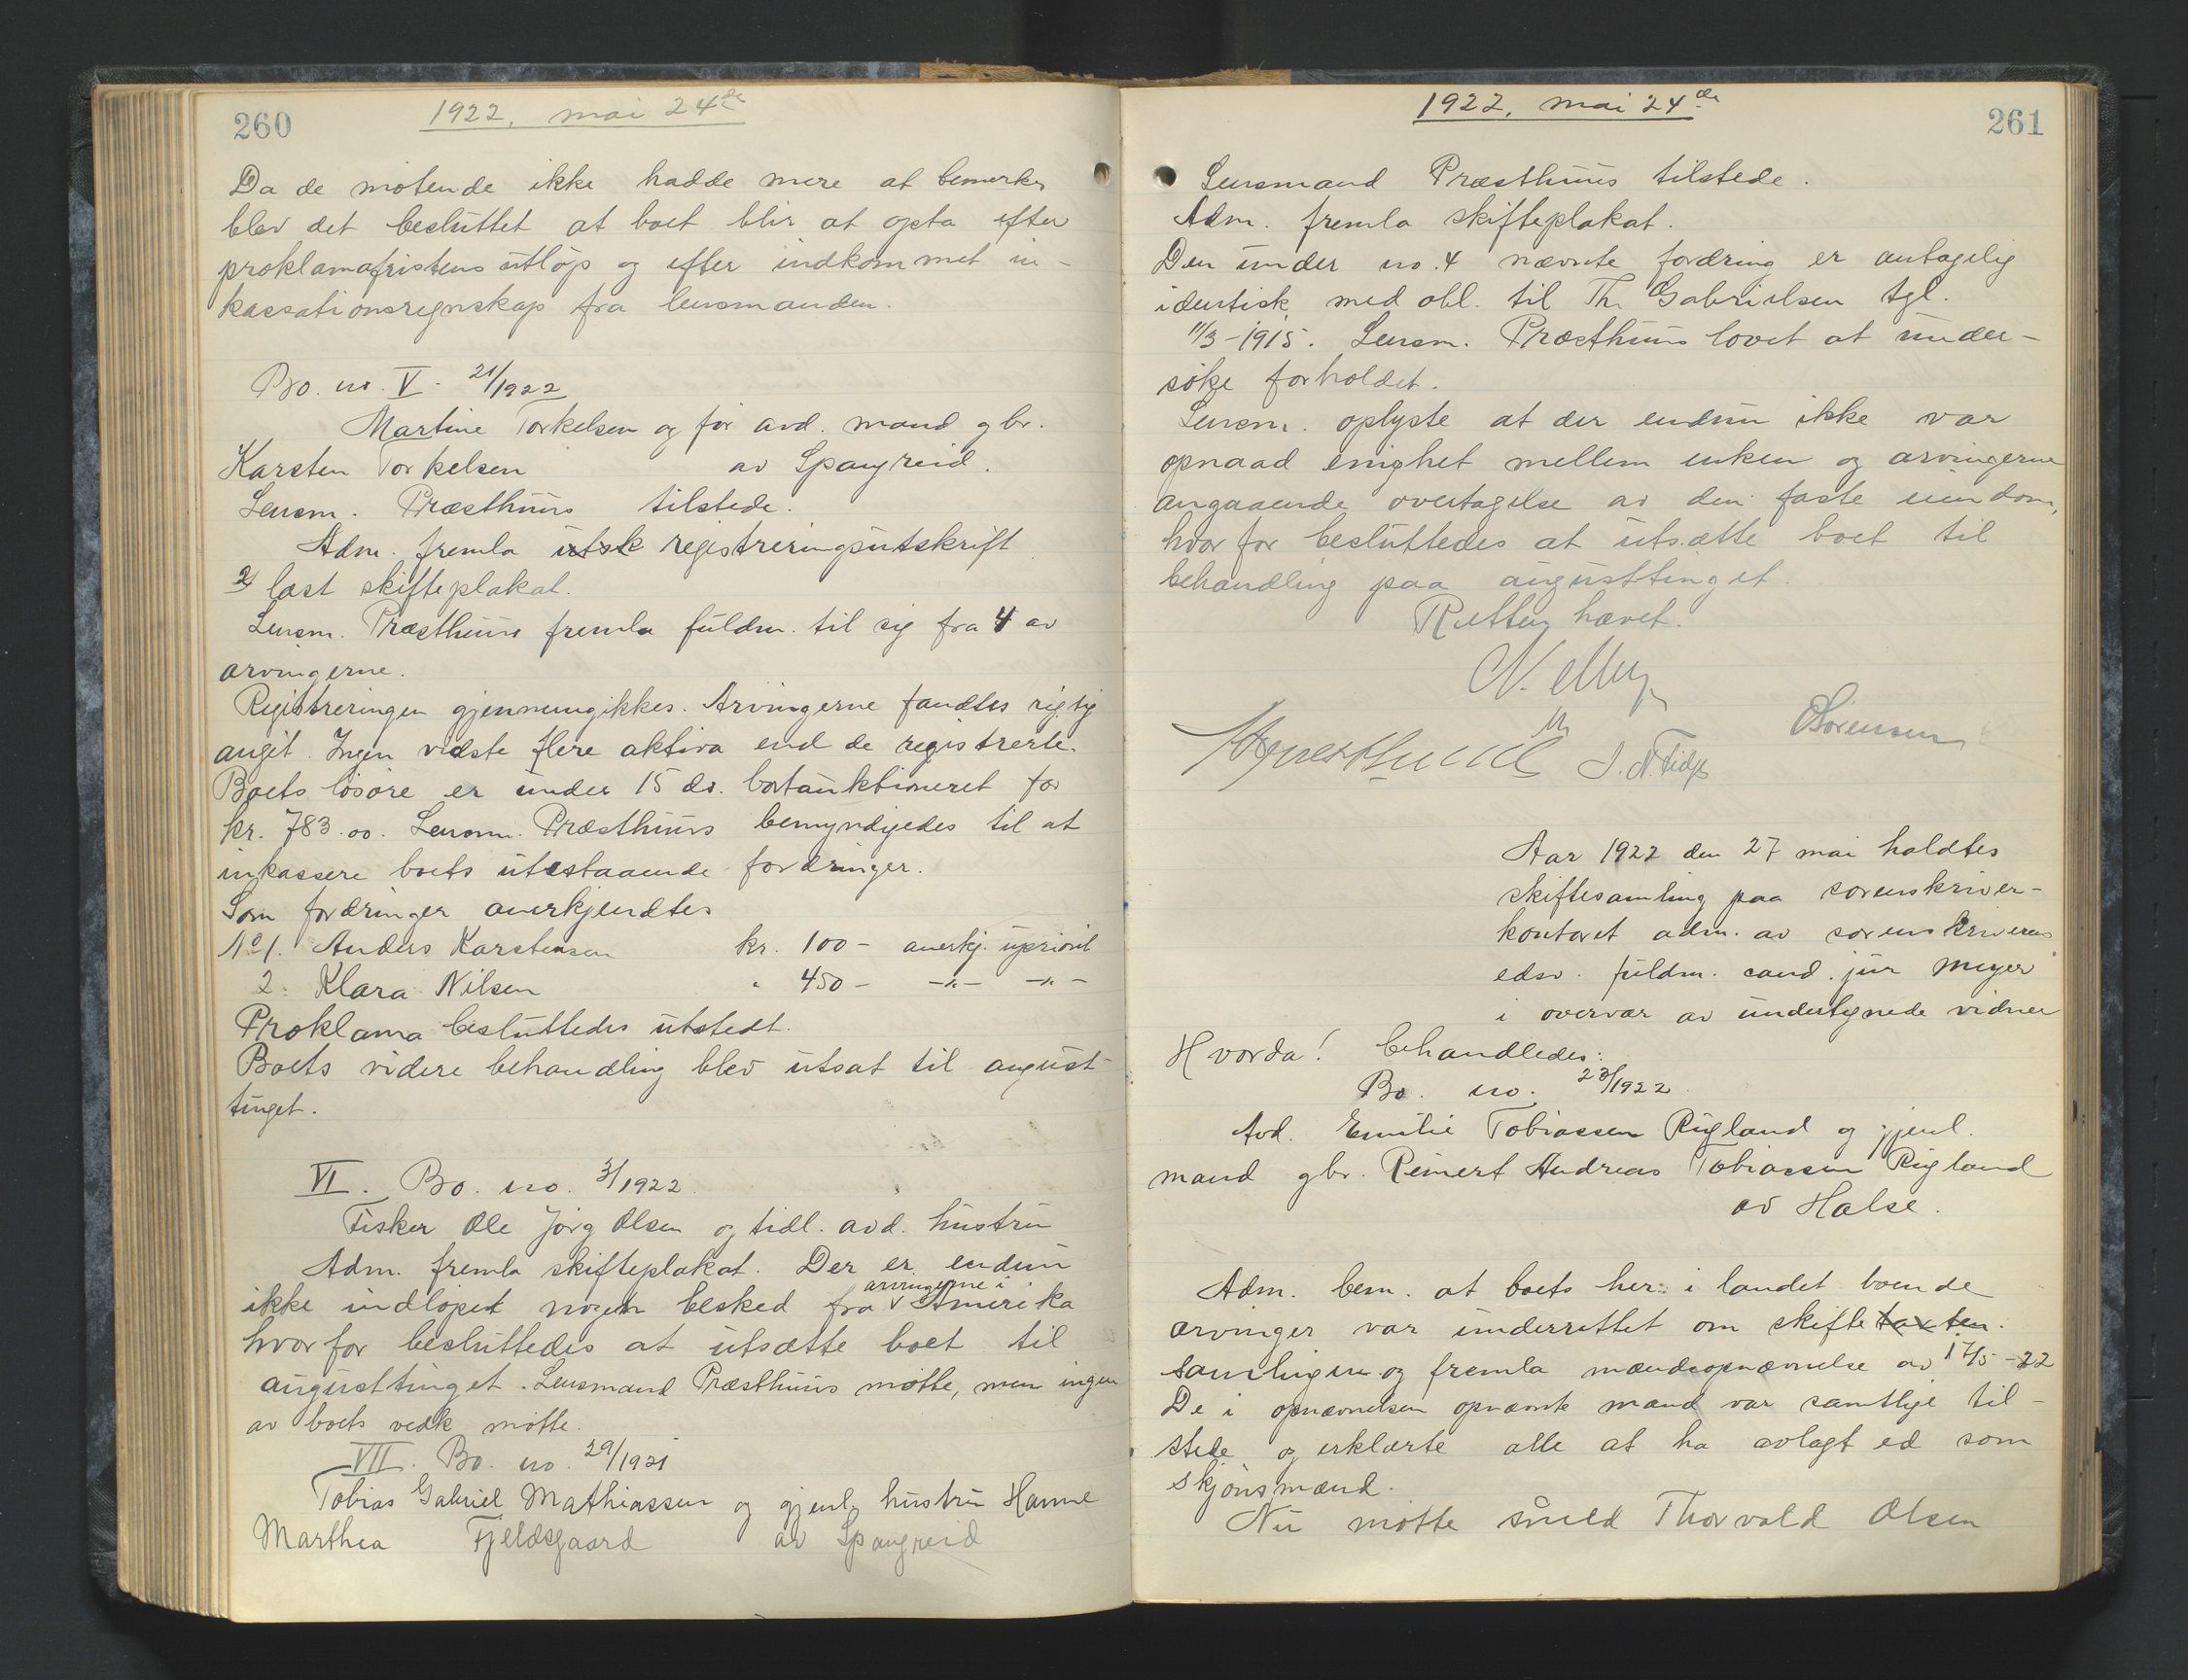 260
1922, mai 24de
Da de møtende ikke hadde mere at bemerke
blev det besluttet at boet blir at opta efter
proklamafristens utløp og efter indkommet in-
kassationsregnskap fra lensmanden.
Bo. no. V. 21/1922
Martine Torkelsen og før avd. mand gbr.
Karsten Torkelsen av Spangreid.
Lensm. Præsthuus tilstede.
Adm. fremla utsk registreringsutskrift
læst skifteplakat.
Lensm. Præsthuus fremla fuldm. til sig fra 4 av
arvingerne.
Registreringen gjennemgikkes. Arvingerne fandtes rigtig
angit. Ingen vidste flere aktiva end de registrerte.
Boets løsøre er under 15 ds. bortauktioneret for
kr. 783.00. Lensm. Præsthuus bemyndigedes til at
inkassere boets utestaaende fordringer.
Som fordringer anerkjendtes
No 1. Anders Karstensen kr. 100 - anerkj. upriorit
2. Klara Nilsen " 450 - -"- -"-
Proklama besluttedes utstedt.
Boets videre behandling blev utsat til august-
tinget.
VI. Bo. no. 3/1922
Fisker Ole Jørg Olsen og tidl. avd. hustru
Adm. fremla skifteplakat. Der er endnu
ikke indløpet nogen besked fra arvingerne i Amerika
hvorfor besluttedes at utsætte boet til
augusttinget. Lensmand Præsthuus møtte, men ingen
av boets vedk møtte.
VII. Bo. no. 29/1921
Tobias Gabriel Mathiassen og gjenl. hustru Hanne
Marthea Fjeldsgaard av Spangreid
261
1922, mai 24de
Lensmand Præsthuus tilstede.
Adm. fremla skifteplakat.
Den under no. 4 nævnte fordring er antagelig
identisk med obl. til Th. Gabrielsen tgl.
11/3-1915. Lensm. Præsthuus lovet at under-
søke forholdet.
Lensm. oplyste at der endnu ikke var
opnaad enighet mellem enken og arvingerne
angaaende overtagelse av den faste eiendom,
hvorfor besluttedes at utsætte boet til
behandling paa augusttinget.
Retten hævet.
N. Meyer
O Sørensen
Aar 1922 den 27 mai holdtes
skiftesamling paa sorenskriver-
kontoret adm. av sorenskriverens
edsv. fuldm. cand. jur Meyer
i overvær av undertegnede vidner
Hvorda! behandledes:
Bo. no. 23/1922
Avd. Emilie Tobiassen Rigland og gjenl.
mand gbr. Reinert Andreas Tobiassen Rigland
av Halse.
Adm. bem. at boets her i landet boende
arvinger var underrettet om skifte
samlingen og fremla mændsopnævnelse av 17/5-22
De i opnævnelsen opnævnte mænd var samtlige til-
stede og erklærte alle at ha avlagt ed som
skjønsmænd.
Nu møtte Thorvald Olsen